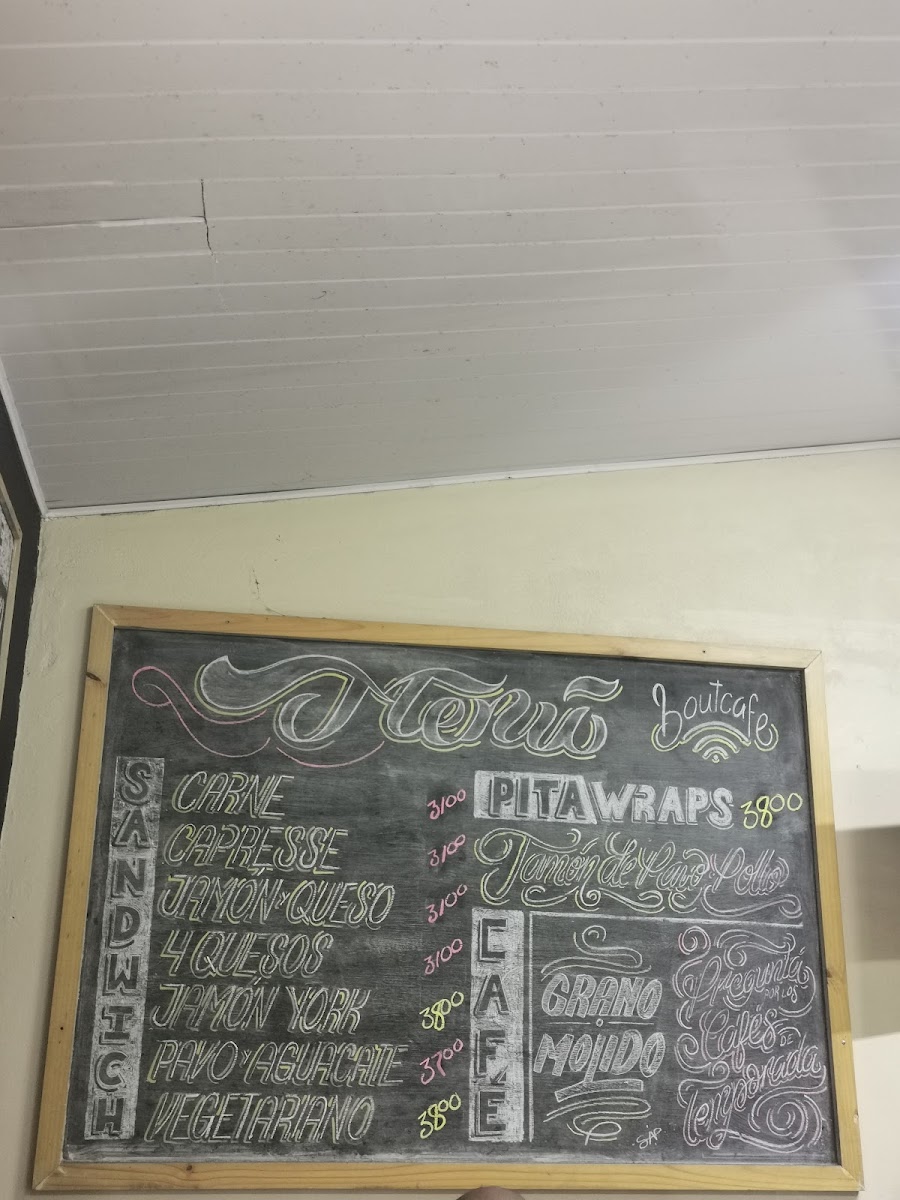 Menú
boutcafe
SANDWICH
CARNE 3100
CAPRESSE 3100
JAMÓN Y QUESO 3100
4 QUESOS 3100
JAMÓN YORK 3800
PAVO Y AGUACATE 3700
VEGETARIANO 3800
PITA WRAPS 3800
Jamón de Pavo y Pollo
CAFE
GRANO
MOJIDO
Preguntá
POR LOS
Cafés
DE
Temporada
SAP